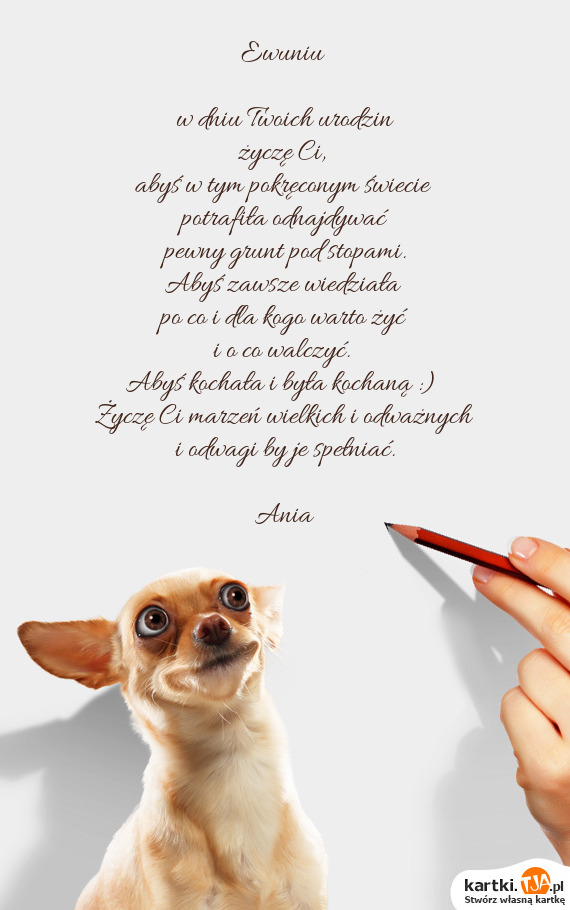 Ewuniu
w dniu Twoich urodzin
życzę Ci,
abyś w tym pokręconym świecie
potrafiła odnajdywać
pewny grunt pod stopami.
Abyś zawsze wiedziała
po co i dla kogo warto żyć
i o co walczyć.
Abyś kochała i była kochaną :)
Życzę Ci marzeń wielkich i odważnych
i odwagi by je spełniać.
Ania
kartki.TJA.pl
Stwórz własną kartkę